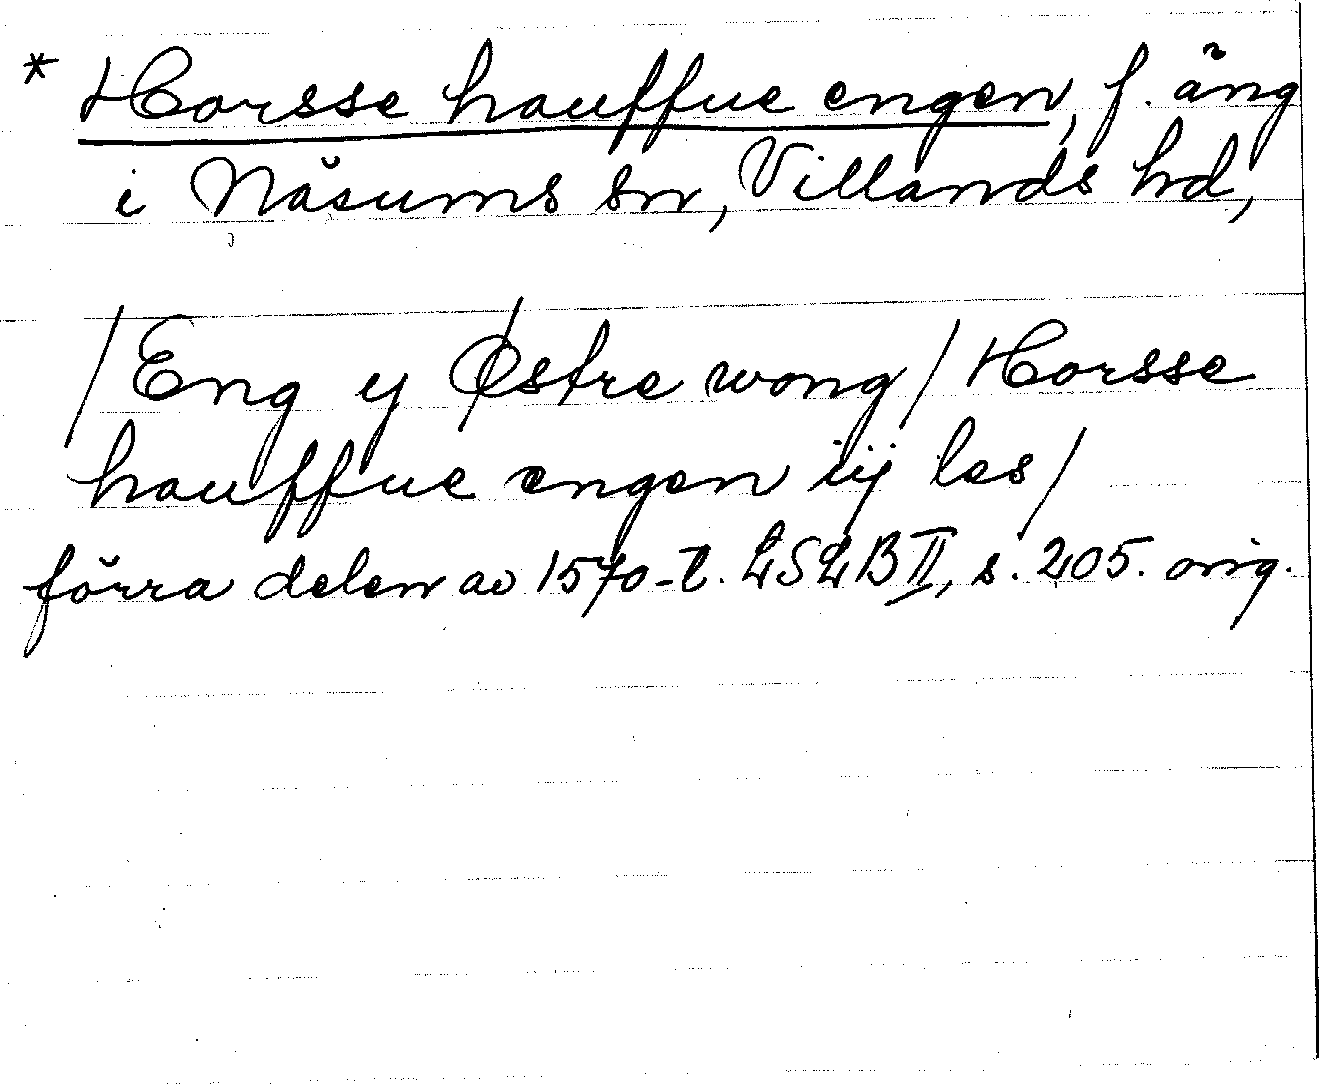 * Horsse hauffue engen, f. äng
i Näsums sn, Villands hd,
/Eng y Østre wong/ Horsse
hauffue engen iij les/
förra delen av 1570-t. LSLB II, s. 205. orig.